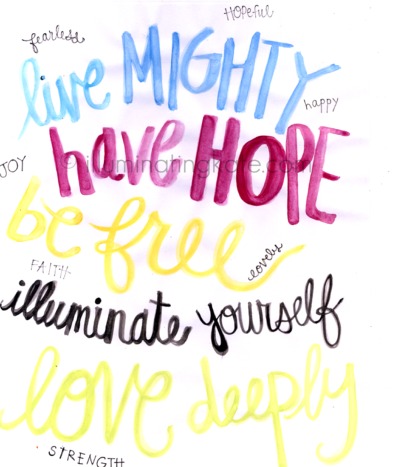 HOPEFUL
fearless
live MIGHTY
happy
have HOPE
© illuminatingkate.com
JOY
be free
lovely
FAITH
illuminate yourself
love deeply
STRENGTH